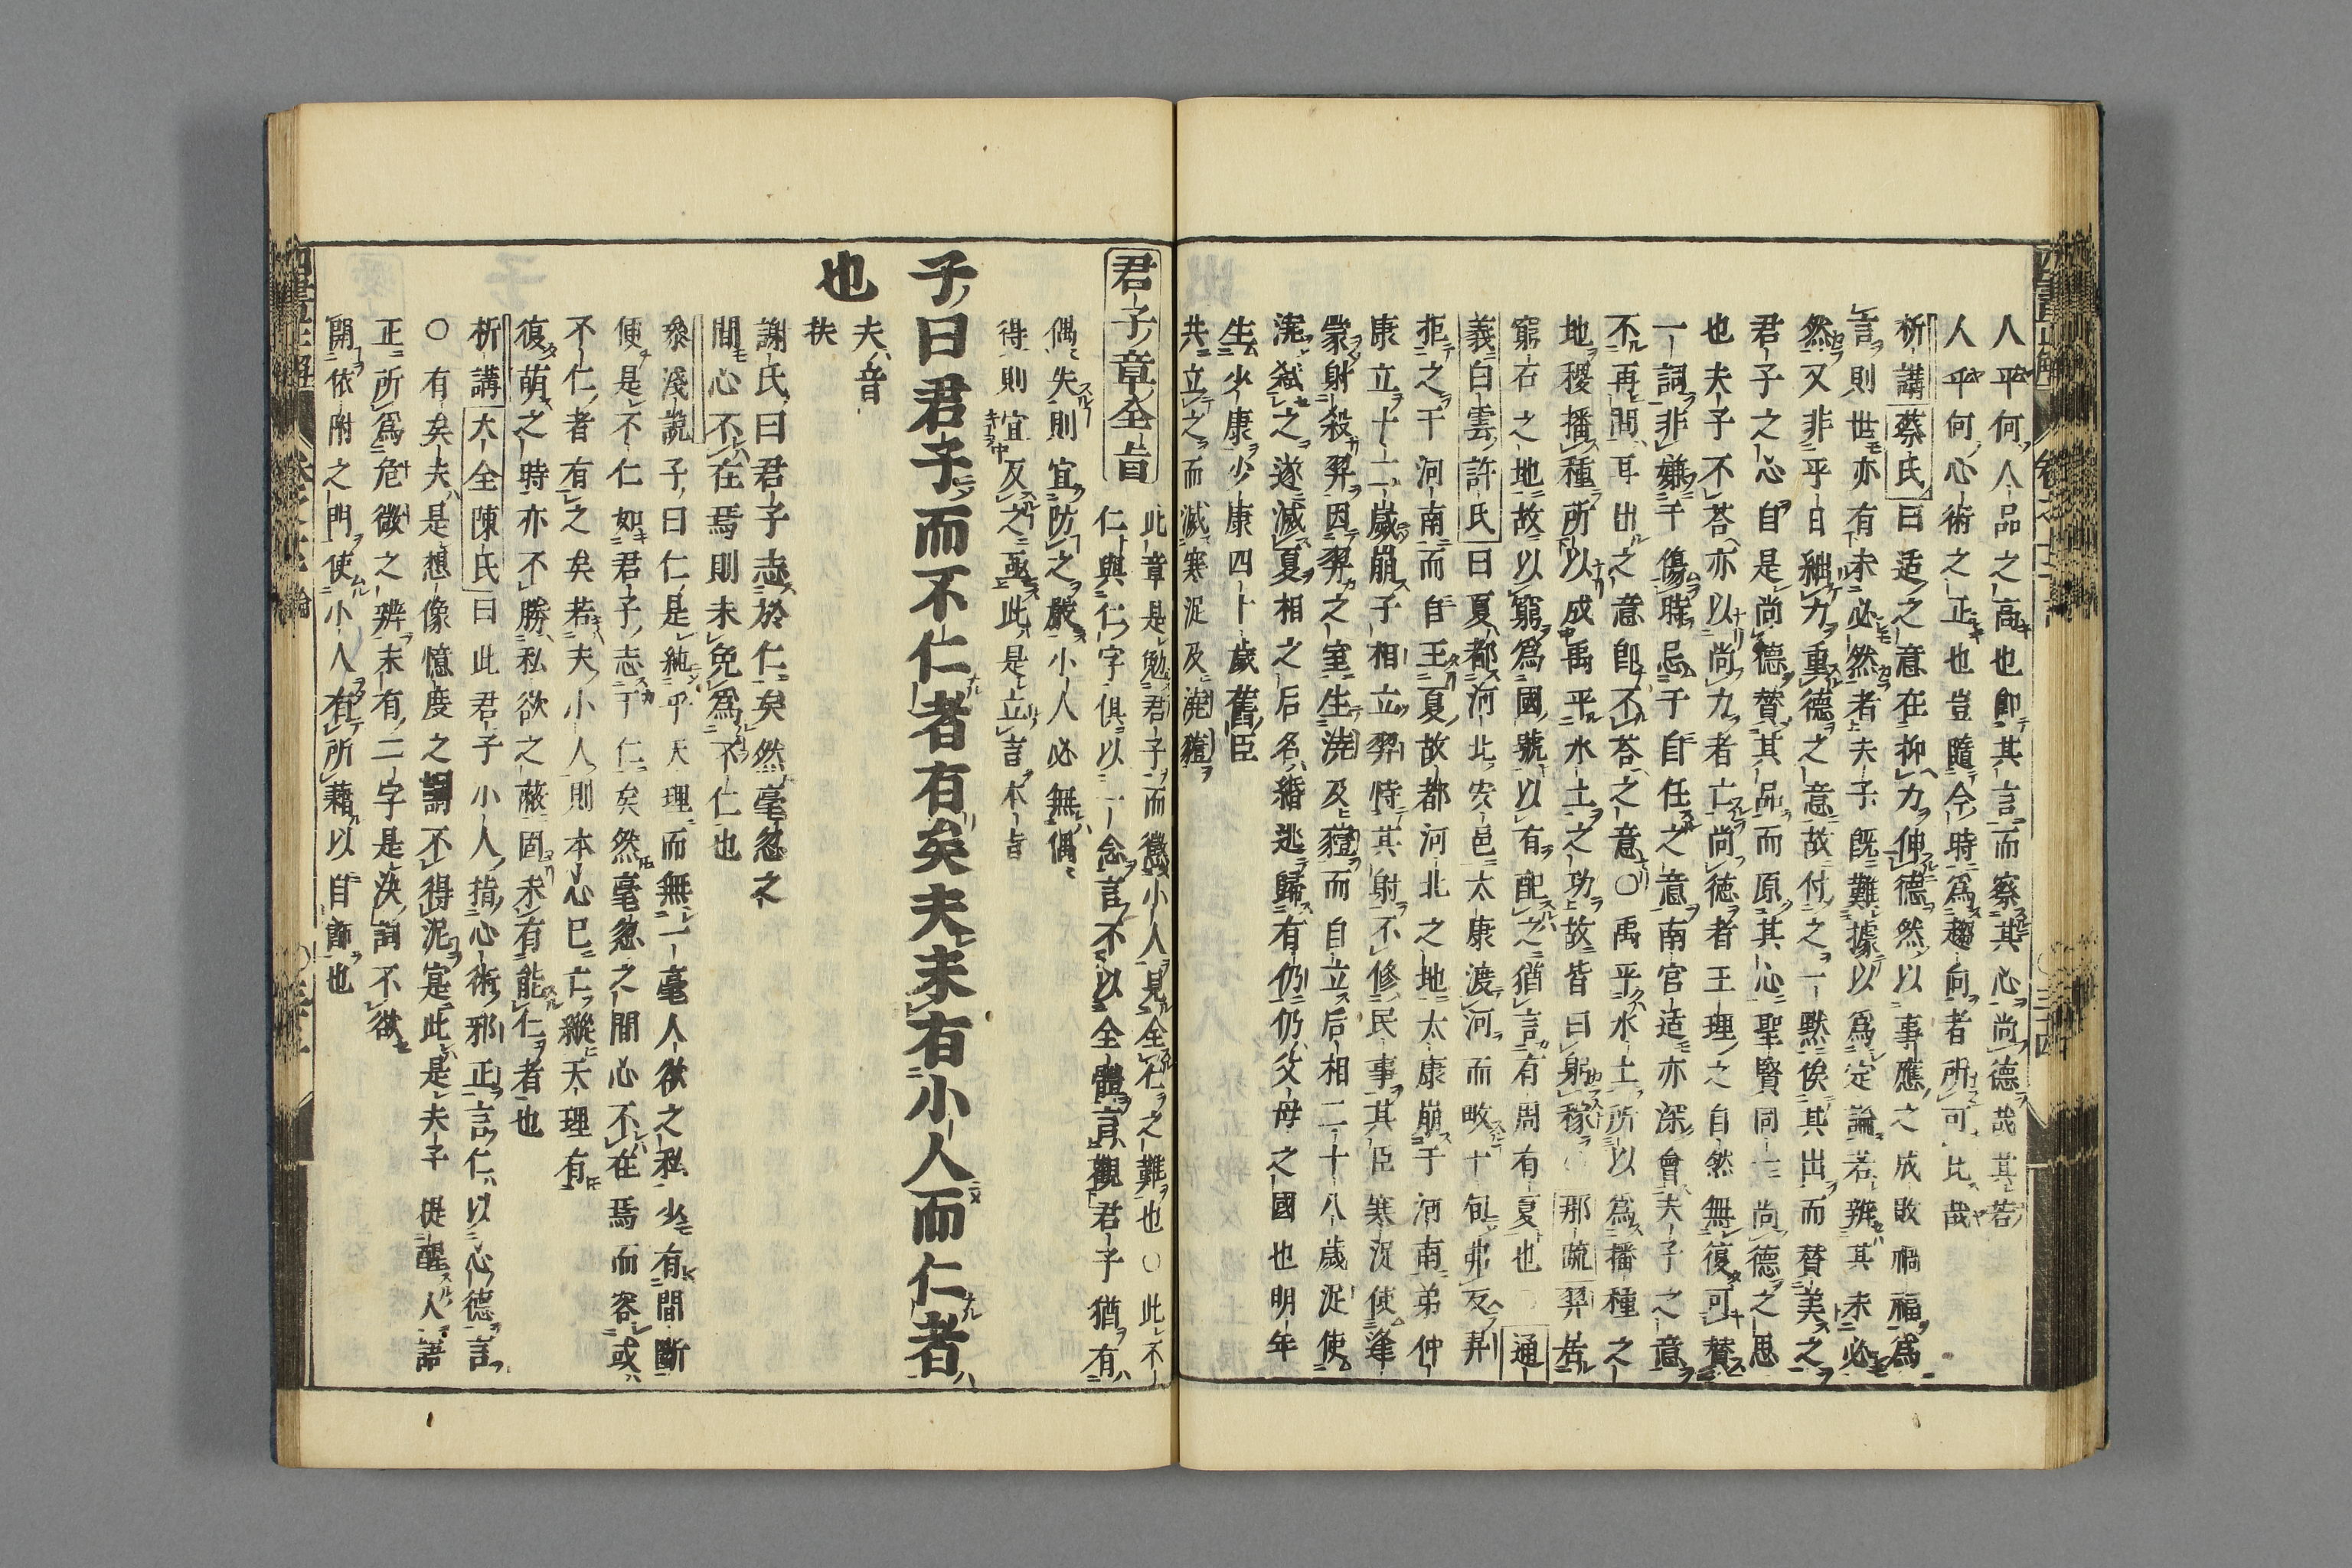 人乎何人品之高也卽其言而察其心尚德哉其若
人乎何心術之正也豈隨今時爲趨向者所可比哉
析講蔡氏曰适之意在抑力伸德然以事應之成敗禍福爲
言則世亦有未必然者夫子旣難據以爲定論若辨其未必
然又非乎日絀力重德之意故付之一默俟其出而賛美之
君子之心自是尚德賛其品而原其心聖賢同一尚德之思
也夫子不荅亦以尚力者亡尚德者王理之自然無復可賛
一詞非嫌于傷時忌于自任之意南宮适亦深會夫子之意
不再問耳出之意卽不荅之意○禹平水土所以爲播種之
地稷播種所以成禹平水土之功故皆曰躬稼○那疏羿居
窮石之地故以窮爲國號以有配之猶言有周有夏也○通
義白雲許氏曰夏都河北安邑太康渡河而畋十旬弗反羿
拒之于河南而自王夏故都河北之地太康崩于河南弟仲
康立十二歲崩子相立羿恃其射不修民事其臣寒浞使逢
蒙射殺羿因羿之室生澆及豷而自立后相二十八歲浞使
澆弑之遂滅夏相之后名緡逃歸有仍仍父母之國也明年
生少康少康四十歲舊臣
共立之而滅寒浞及澆豷
君子章全旨
此章是勉君子而懲小人見全仁之難也○此不
仁與仁字俱以一念言不以全體言觀君子猶有
偶失則宜防之嚴小人必無偶
得則宜反之亟此是立言本旨
子曰君子而不仁者有矣夫未有小人而仁者
也
夫音
扶
謝氏曰君子志於仁矣然毫忽之
間心不在焉則未免爲不仁也
參淺說子曰仁是純乎天理而無一毫人欲之私少有間斷
便是不仁如君子志于仁矣然毫忽之間心不在焉而容或
不仁者有之矣若夫小人則本心已亡縱天理有
復萌之時亦不勝私欲之蔽固未有能仁者也
析講大全陳氏曰此君子小人指心術邪正言仁以心德言
○有矣夫是想像憶度之謂不得泥寔此是夫子提醒人語
正所爲危微之辨未有二字是決詞不欲
開依附之門使小人有所藉以自飾也